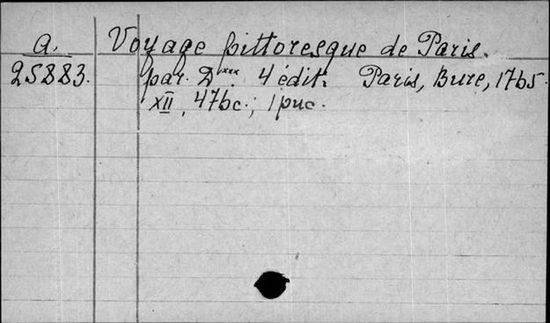 A. Voyage pittoresque de Paris.
25883. par. D***. 4 édit: Paris, Bure, 1765.
XII, 476 c.; 1 рис.